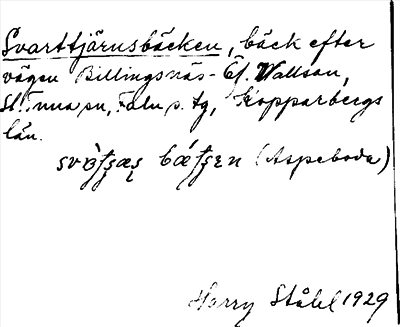 Svarttjärnsbäcken, bäck efter
vägen Billingsnäs - Wallsan,
St. Tuna sn, Falu s. tg, Kopparbergs
län.
(Aspeboda)
Harry Ståhl 1929